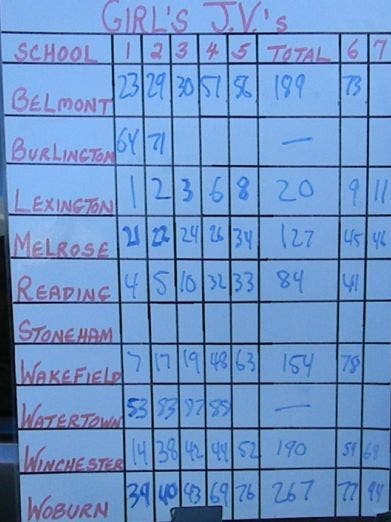 GIRL'S J.V.'s
SCHOOL 1 2 3 4 5 TOTAL 6 7
BELMONT 23 29 30 51 56 189 73
BURLINGTON 64 71 —
LEXINGTON 1 2 3 6 8 20 9 11
MELROSE 21 22 24 26 34 127 45 46
READING 4 5 10 32 33 84 41
STONEHAM
WAKEFIELD 7 17 19 48 63 154 78
WATERTOWN 53 83 87 88 —
WINCHESTER 14 38 42 44 52 190 59 69
WOBURN 39 40 43 69 76 267 77 94